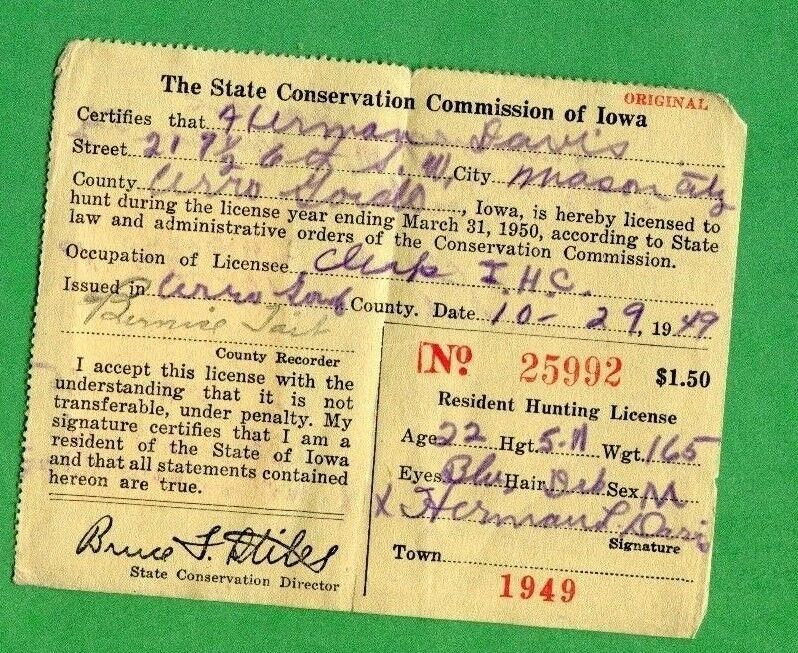 ORIGINAL
The State Conservation Commission of Iowa
Certifies that Herman Davis
Street 219½ 6th S.W. City Mason City
County Cerro Gordo, Iowa, is hereby licensed to
hunt during the license year ending March 31, 1950, according to State
law and administrative orders of the Conservation Commission.
Occupation of Licensee Clerk I.H.C.
Issued in Cerro Gordo County. Date 10-29, 1949
Bernice Tait
County Recorder
I accept this license with the
understanding that it is not
transferable, under penalty. My
signature certifies that I am a
resident of the State of Iowa
and that all statements contained
hereon are true.
Bruce F. Stiles
State Conservation Director
No. 25992 $1.50
Resident Hunting License
Age 22 Hgt 5-11 Wgt. 165
Eyes Blu Hair Sex M
X Herman L. Davis
Signature
Town
1949